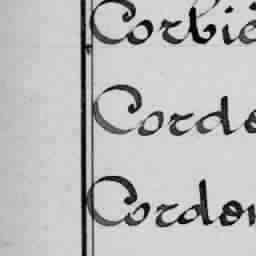 Corbié
Corde
Cordon